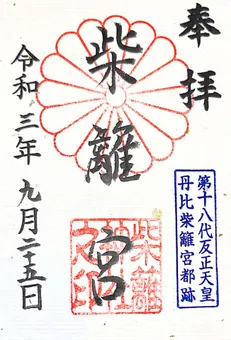 奉拝
柴籬宮
第十八代反正天皇
丹比柴籬宮都跡
令和三年九月二十五日
柴籬
之印